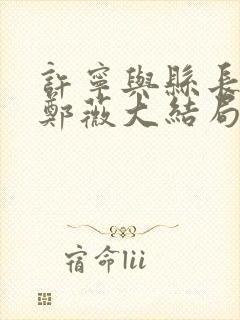 許寧與縣長
鄭薇大結局
宿命lii